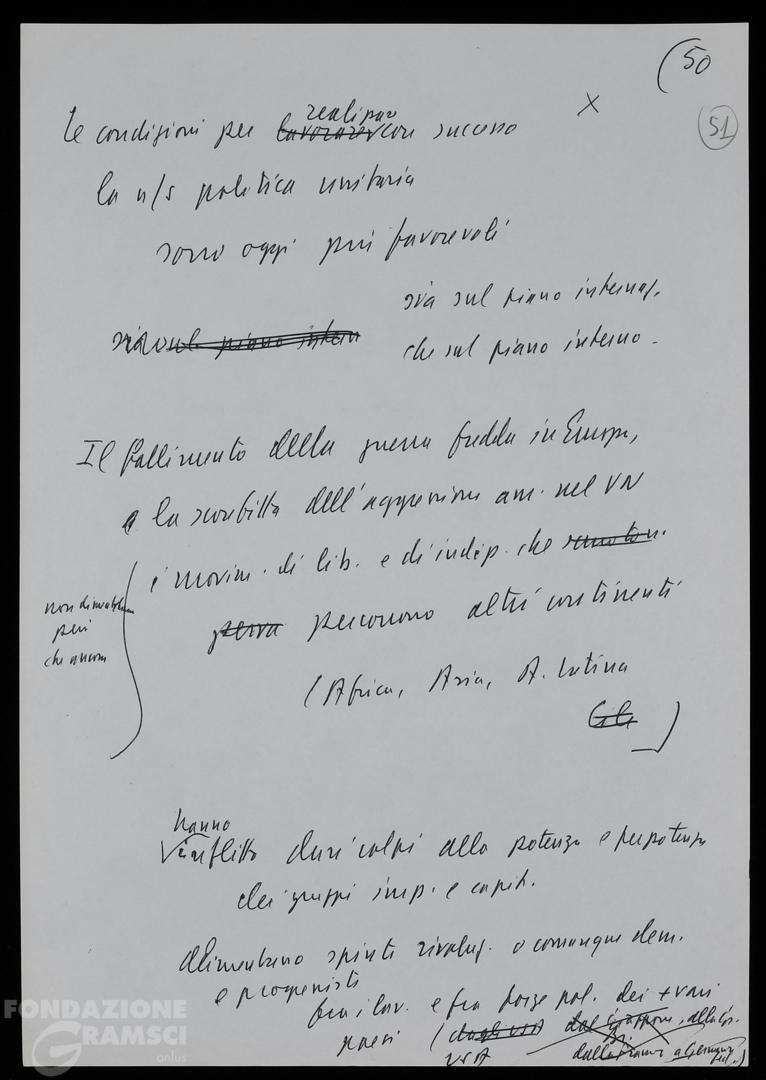 (50
51
X
realizzare
Le condizioni per lavorare con successo
la n/s politica unitaria
sono oggi più favorevoli
sia sul piano internaz.
sia sul piano intern
che sul piano interno -
Il fallimento della guerra fredda in Europa,
e la sconfitta dell'aggressione am. nel VN
i movim. di lib. e di indip. che
non dimentichiamo
però
che ancora
percorrono altri continenti
(Africa, Asia, A. Latina
Cile )
hanno
inflitto duri colpi alla potenza e prepotenza
dei gruppi imp. e capit.
Alimentano spinte rivoluz. o comunque dem.
e progressiste
fra i lav. e fra forze pol. dei + vari
paesi (dagli USA dal Giappone, alla
USA dalla Francia a Germania
FONDAZIONE
GRAMSCI
onlus